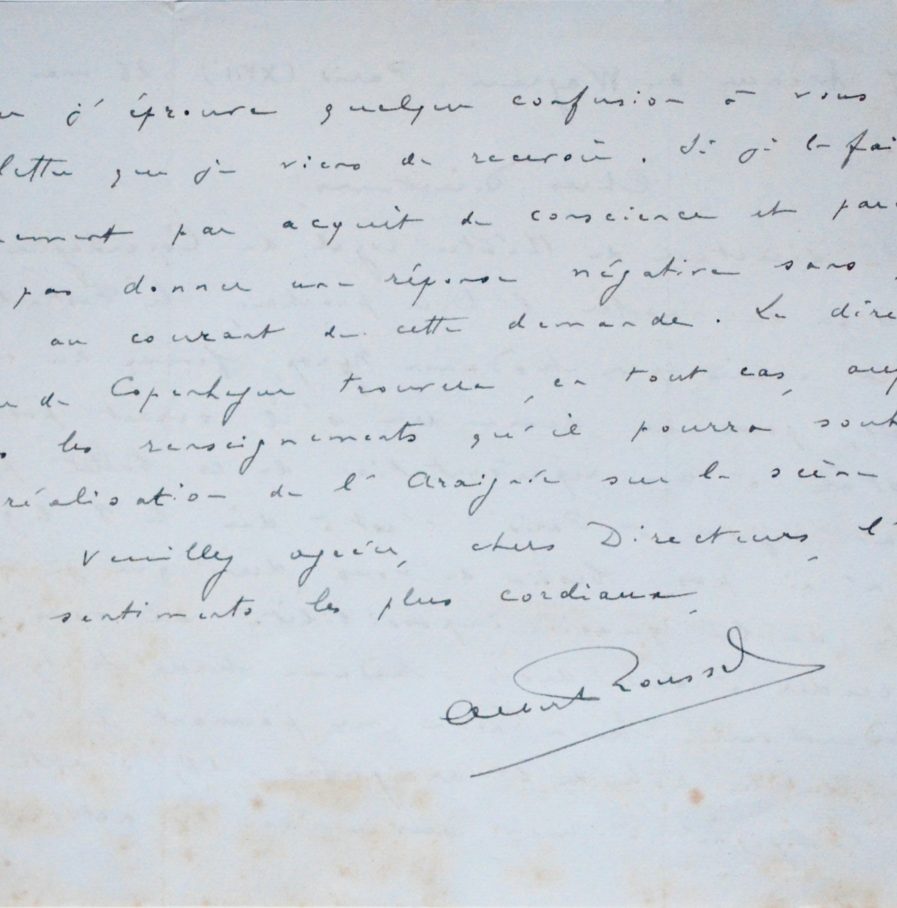 j'éprouve quelque confusion à vous
lettre que je viens de recevoir. Si je le fai
par acquit de conscience et par
pas donner une réponse négative sans
au courant de cette demande. Le dire
de Copenhague trouvera, en tout cas, aup
les renseignements qu'il pourra souh
réalisation de l'Araignée sur la scène
Veuillez agréer, chers Directeurs, l'
sentiments les plus cordiaux.
Albert Roussel